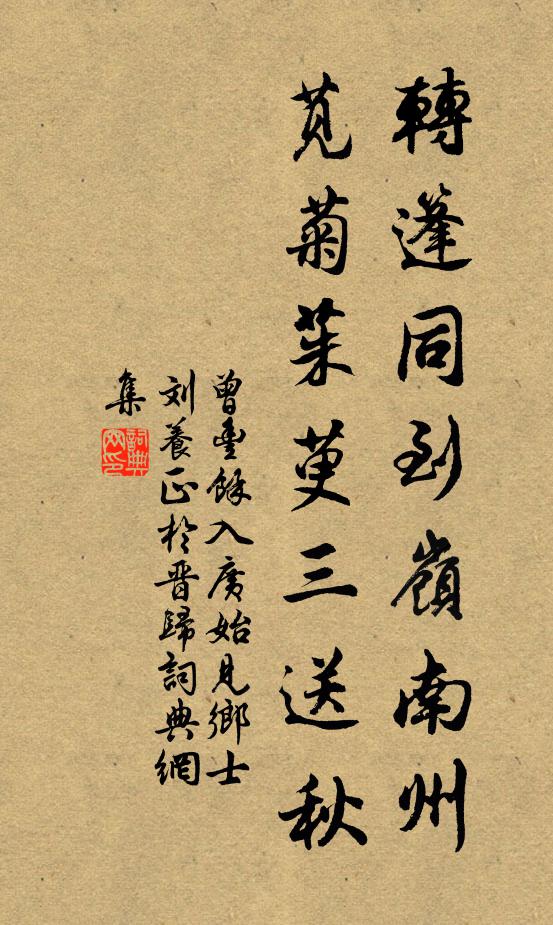 轉蓬同到嶺南州
莧菊茱萸三送秋
曾豐餘入廣始見鄉士
刘養正於晋歸詞典網
集
詞典
网印